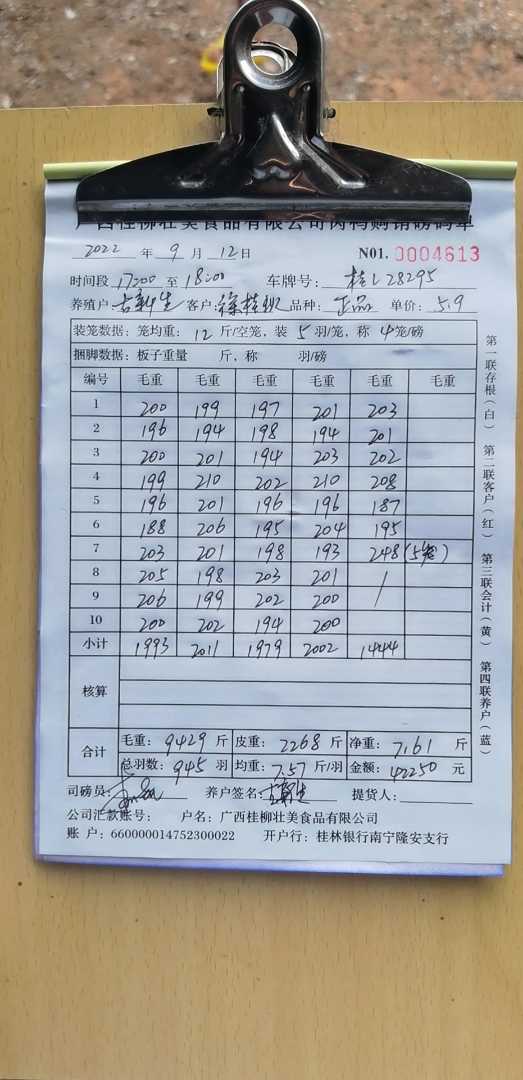 广西桂柳壮美食品有限公司肉鸭购销磅码单
2022 年 9 月 12 日 NO1. 0004613
时间段 17:00 至 18:00 车牌号: 桂L28295
养殖户 古新生 客户: 品种: 正品 单价: 5.9
装笼数据: 笼均重: 12 斤/空笼, 装 5 羽/笼, 称 4 笼/磅
捆脚数据: 板子重量 斤, 称 羽/磅
编号 毛重 毛重 毛重 毛重 毛重 毛重
1 200 199 197 201 203
2 196 194 198 194 201
3 200 201 194 203 202
4 199 210 202 210 208
5 196 201 196 196 187
6 188 206 195 204 195
7 203 201 198 193 248 (5笼)
8 205 198 203 201 /
9 206 199 202 200
10 200 202 194 200
小计 1993 2011 1979 2002 1444
核算
合计 毛重: 9429 斤 皮重: 2268 斤 净重: 7161 斤
总羽数: 945 羽 均重: 7.57 斤/羽 金额: 42250 元
司磅员: 养户签名: 古新生 提货人:
公司汇款账号: 户名: 广西桂柳壮美食品有限公司
账 户: 660000014752300022 开户行: 桂林银行南宁隆安支行
第一联存根(白) 第二联客户(红) 第三联会计(黄) 第四联养户(蓝)